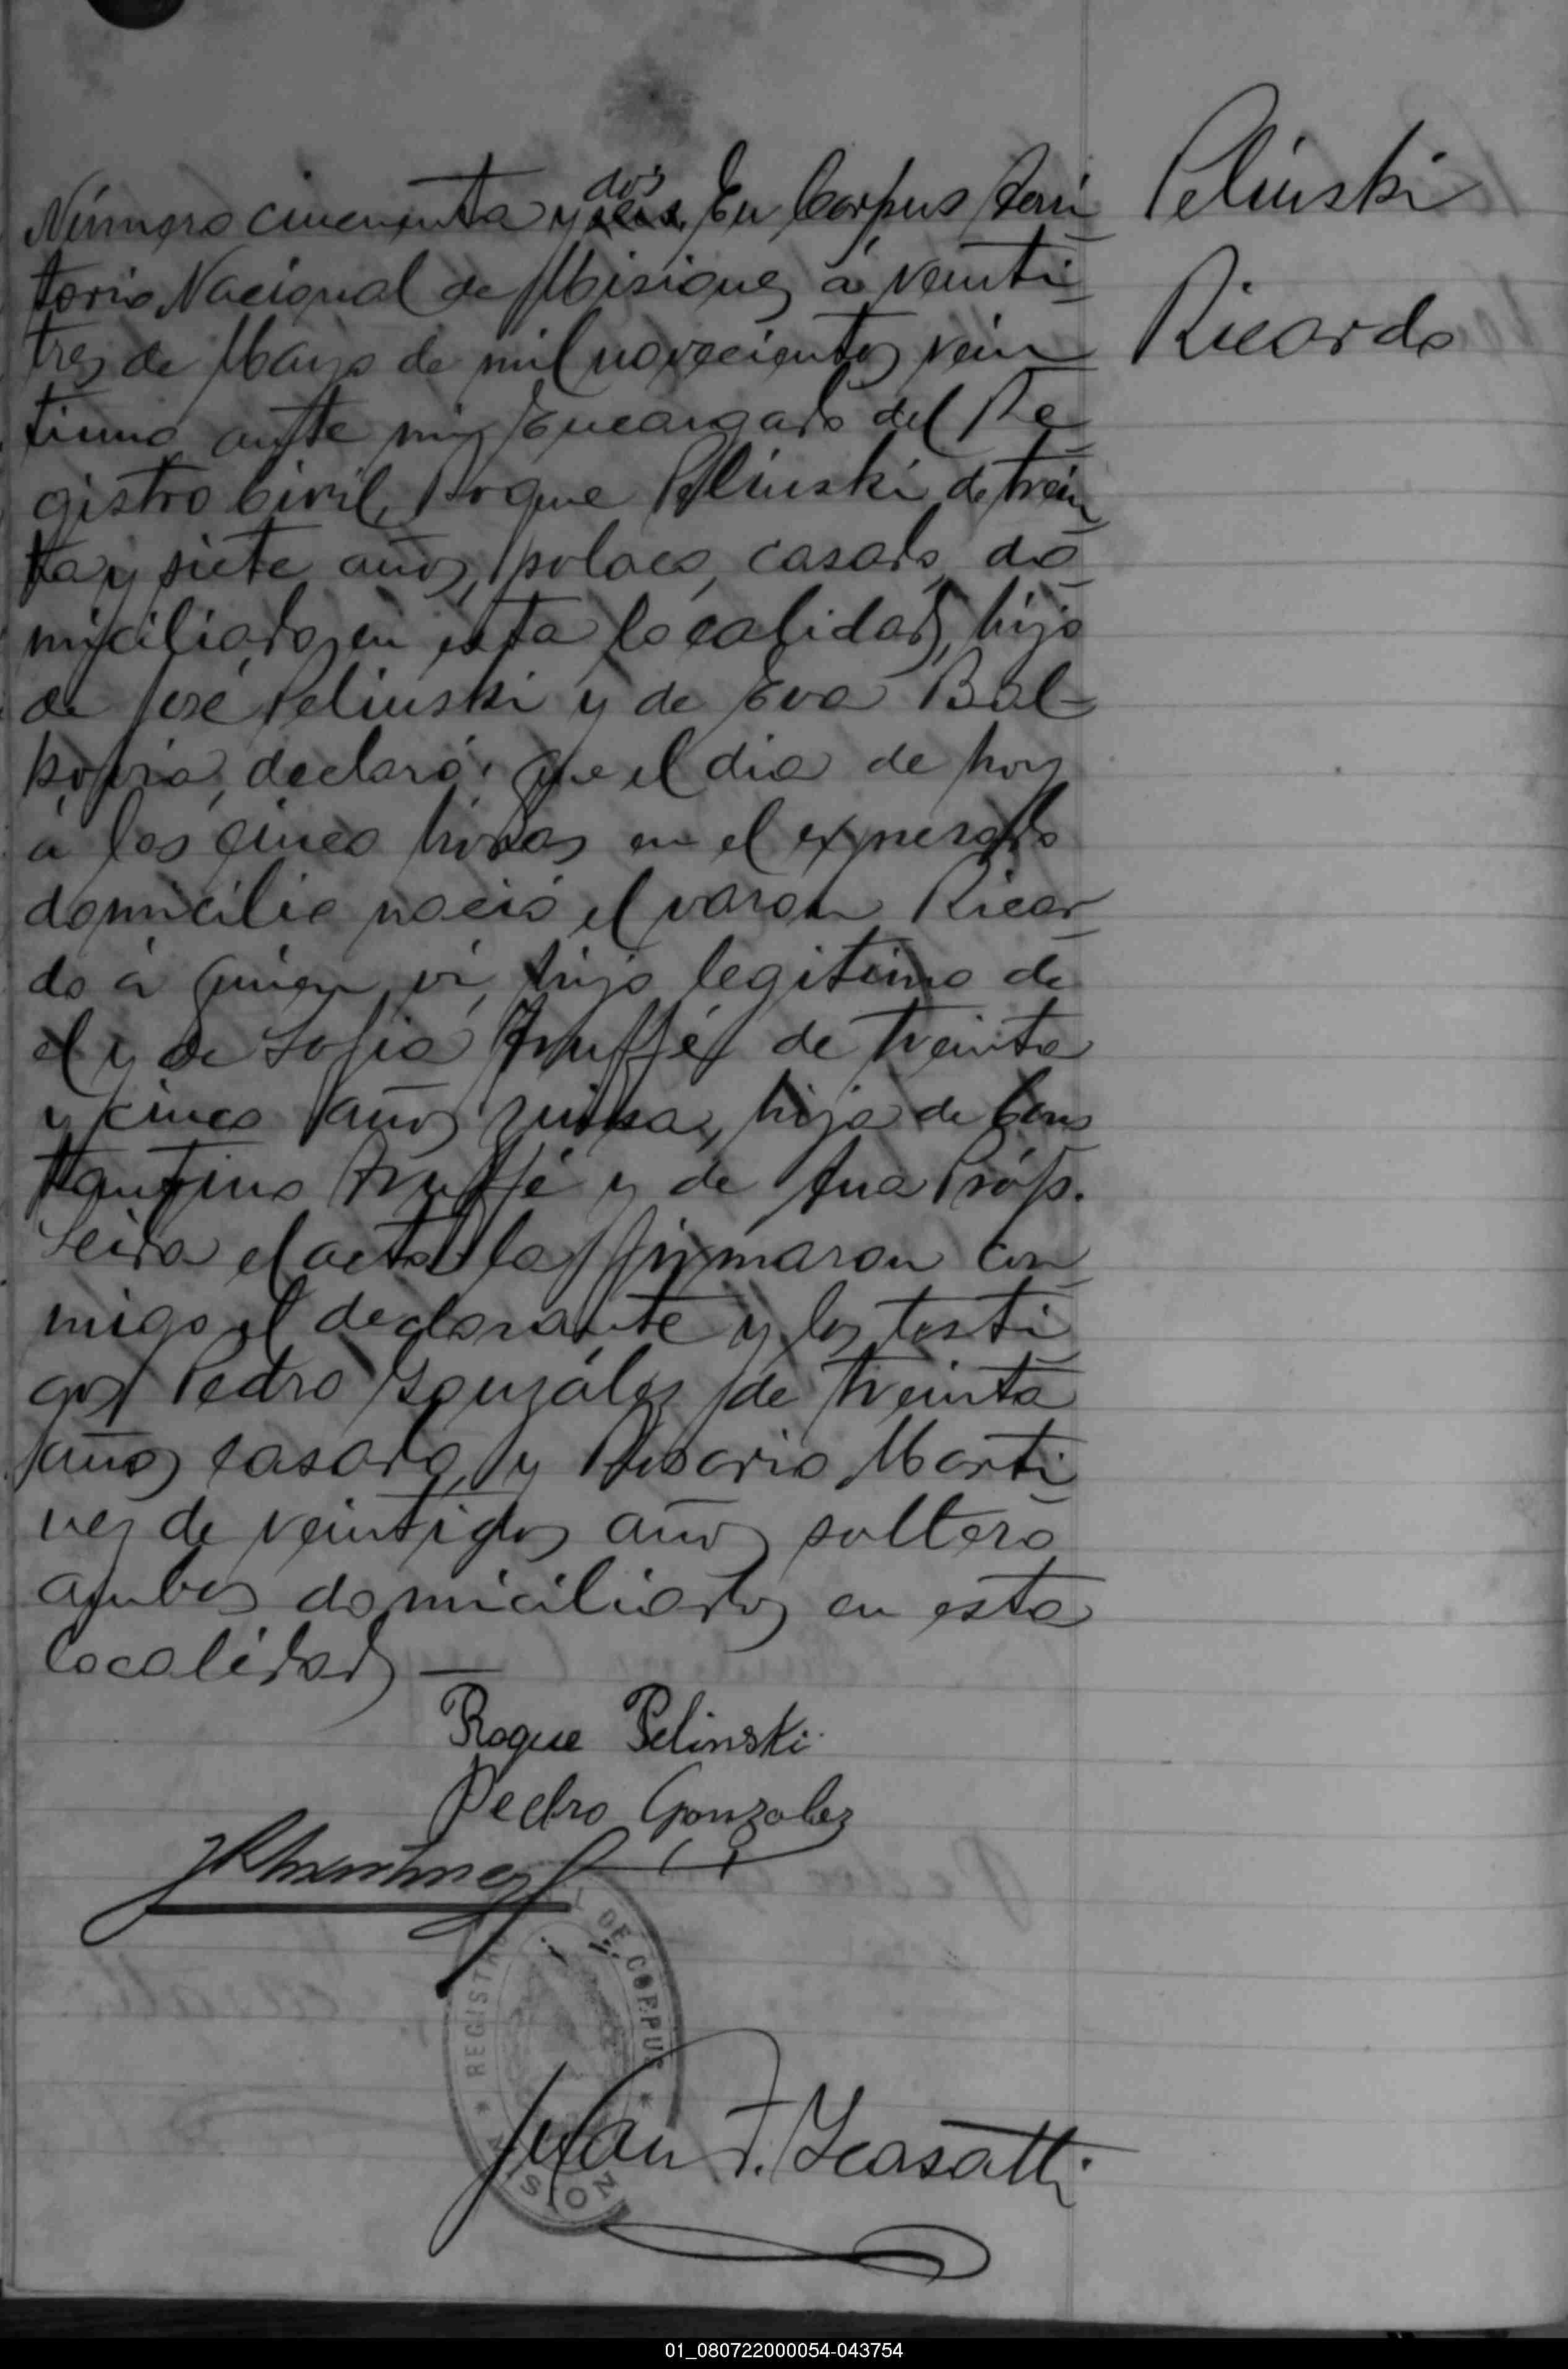 Pelinski
Ricardo
Número cincuenta y seis dos. En Corpus Terri
torio Nacional de Misiones, á veinti
tres de Mayo de mil novecientos vein
tiuno ante mí, Encargado del Re
gistro Civil, Roque Pelinski, de trein
ta y siete años, polaco, casado, do
miciliado en esta localidad, hijo
de José Pelinski y de Eva
declaró: Que el dia de hoy
á las cinco horas en el expresado
domicilio nació el varon Ricar
do á quien ví, hijo legitimo de
el y de Sofia de treinta
y cinco años, hija de Cons
tantino y de Ana
Leida el acta la firmaron con
migo el declarante y los testi
gos Pedro Gonzáles, de treinta
años, casado, y Rosario Marti
nez de veintidos años, soltero
ambos domiciliados en esta
localidad —
Roque Pelinski
Pedro Gonzalez
REGISTRO CIVIL DE CORPUS
MISIONES
Juan F.
01_080722000054-043754